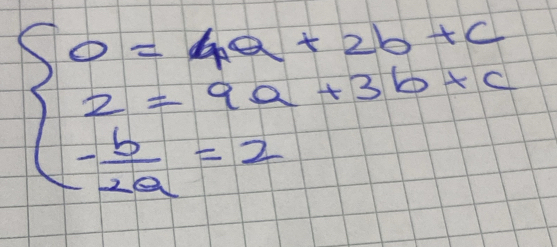 0 = 4a + 2b + c
2 = 9a + 3b + c
-b/2a = 2